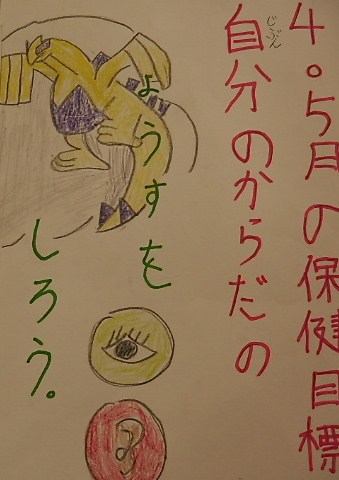 4.5月の保健目標
自分のからだの
じぶん
ようすを
しろう。